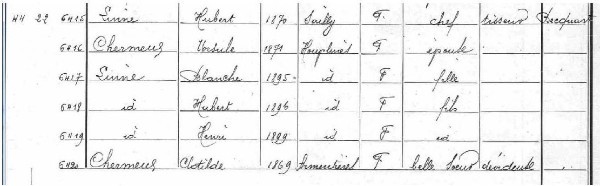 44 22 6415 Linne Hubert 1870 Sailly F. chef tisseur
6416 Chermeux Ursule 1871 Houplines F. épouse
6417 Linne Blanche 1895 id F fille
6418 id Hubert 1896 id F fils
6419 id Henri 1899 id F id
6420 Chermeux Clotilde 1869 Armentières F belle soeur dévideuse